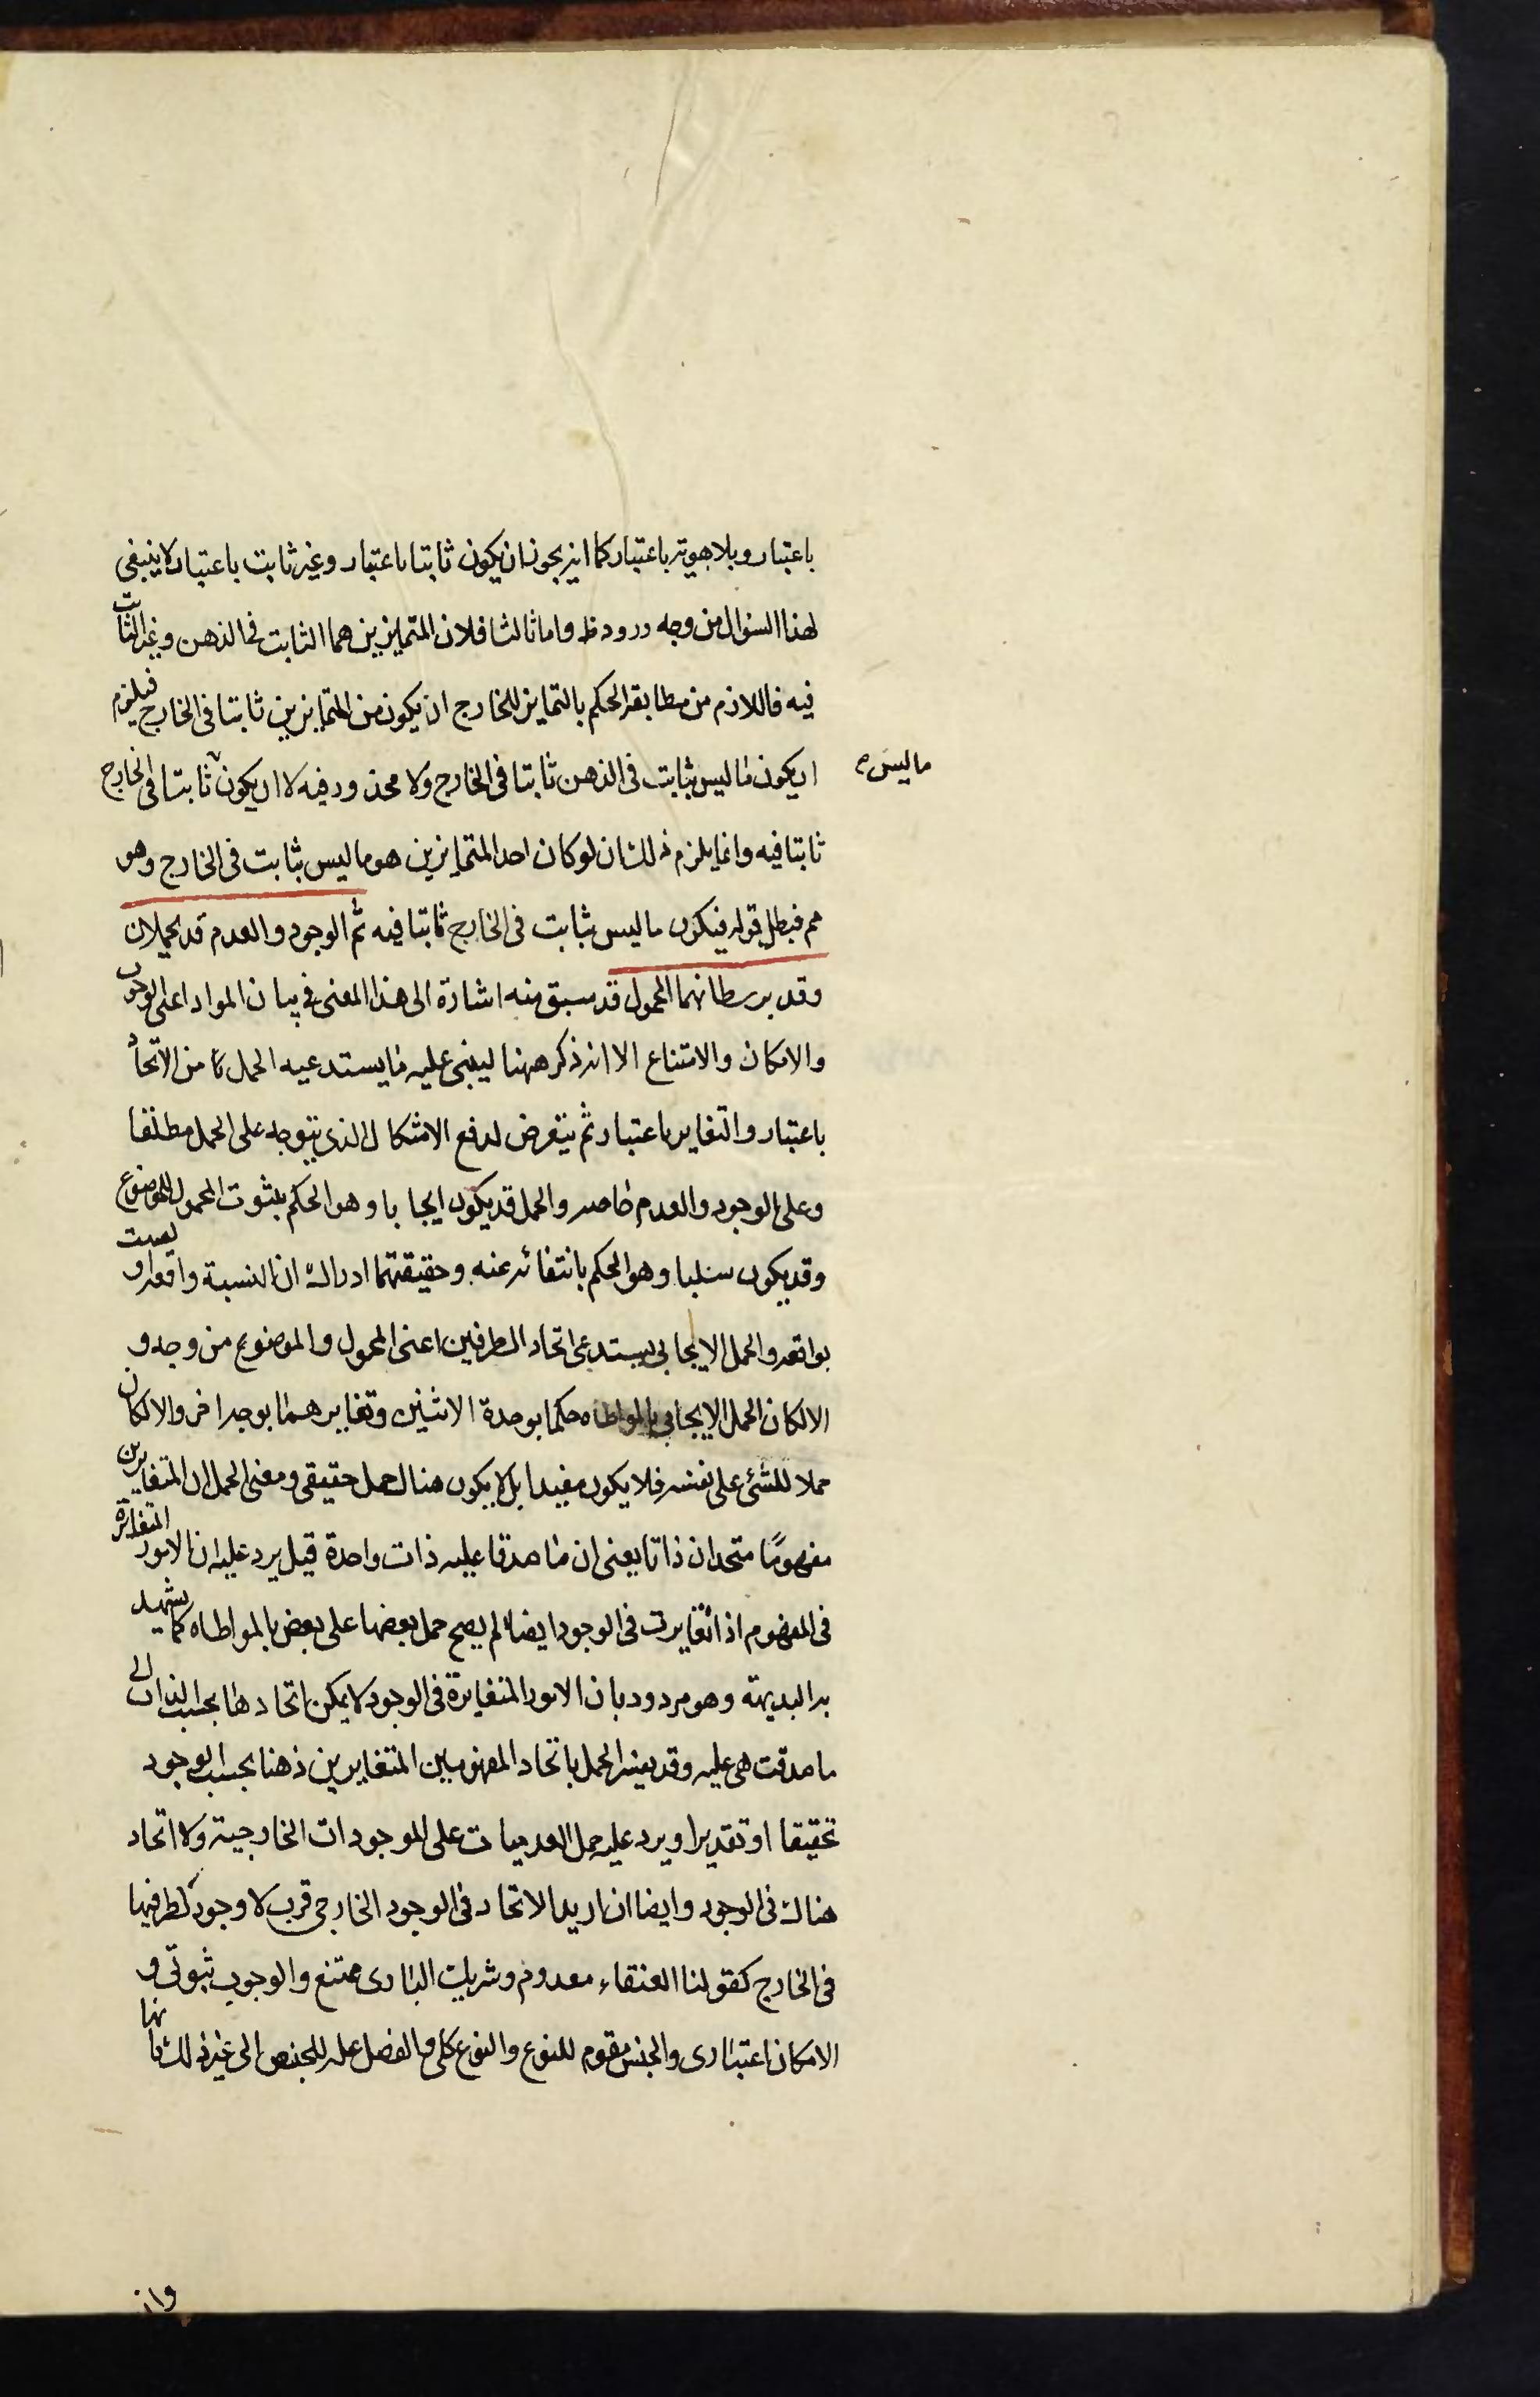 باعتبار وبلا هويته باعتبار كما انه يجوز ان يكون ثابتا باعتبار وغير ثابت باعتبار لا ينبغى
لهذا السؤال من وجه ورود ظ واما ثالثا فلان المتمايزين هما الثابت فى الذهن وغير الثابت
فيه فاللازم من مطابقه الحكم بالتمايز للخارج ان يكون من المتمايزين ثابتا فى الخارج فيلزم
ان يكون ما ليس بثابت فى الذهن ثابتا فى الخارج ولا محذور فيه لا ان يكون ثابتا فى الخارج
ما ليس
ثابتا فيه وانما يلزم ذلك ان لو كان احد المتمايزين هو ما ليس بثابت فى الخارج وهو
مم فبطل قوله فيكون ما ليس بثابت فى الخارج ثابتا فيه ثم الوجود والعدم قد يحملان
وقد يربط بهما المحمول قد سبق منه اشارة الى هذا المعنى فى بيان المواد اعنى الوجوب
والامكان والامتناع الا انه ذكر ههنا ليبنى عليه ما يستدعيه الحمل من الاتحاد
باعتبار والتغاير باعتبار ثم يتعرض لدفع الاشكال الذى يتوجه على الحمل مطلقا
وعلى الوجود والعدم خاصه والحمل قد يكون ايجابا وهو الحكم بثبوت المحمول للموضوع
وقد يكون سلبا وهو الحكم بانتفائه عنه وحقيقتهما ادراك ان النسبة واقعه او ليست
بواقعه والحمل الايجابى يستدعى اتحاد الطرفين اعنى المحمول والموضوع من وجه و
الا لكان الحمل الايجابى بالمواطاه حكما بوحدة الاثنين وتغايرهما بوجه اخر والا لكان
حملا للشئ على نفسه فلا يكون مفيدا بل لا يكون هناك حمل حقيقى ومعنى الحمل ان المتغايرين
مفهومًا متحدان ذاتا يعنى ان ما صدقا عليه ذات واحدة قيل يرد عليه ان الامور المتغايرة
فى المفهوم اذا تغايرت فى الوجود ايضا لم يصح حمل بعضها على بعض بالمواطاه كما يشهد
به البديهة وهو مردود بان الامور المتغايرة فى الوجود لا يمكن اتحادها بحسب الذات اى
ما صدقت هى عليه وقد يفسر الحمل باتحاد المفهومين المتغايرين ذهنا بحسب الوجود
تحقيقا او تقديرا ويرد عليه حمل العدميات على الموجودات الخارجية ولا اتحاد
هناك فى الوجود وايضا ان اريد الاتحاد فى الوجود الخارجى فرب لا وجود لطرفيها
فى الخارج كقولنا العنقاء معدوم وشريك البارى ممتنع والوجوب ثبوتى و
الامكان اعتبارى والجنس مقوم للنوع والنوع كلى والفصل عله للجنس الى غير ذلك
وان